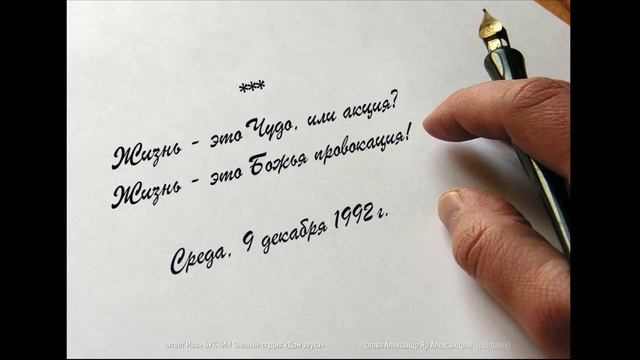 ***
Жизнь - это Чудо, или акция?
Жизнь - это Божья провокация!
Среда, 9 декабря 1992 г.
читает Иван БУКЧИН Онлайн-студия «Дом звука»
слова Александр Яр Александров (poimatex)